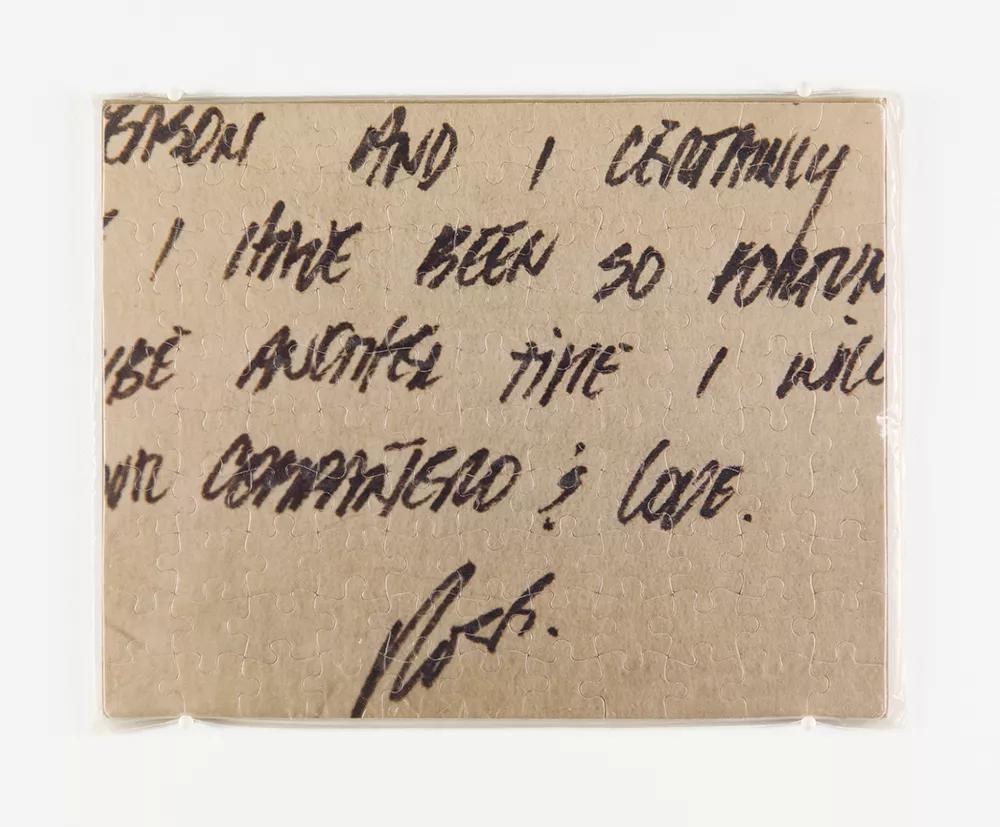 ERSON AND I CERTAINLY
Y I HAVE BEEN SO FORTUN
YBE ANOTHER TIME I WILL
OUR COMPAÑERO & LOVE.
Ross.